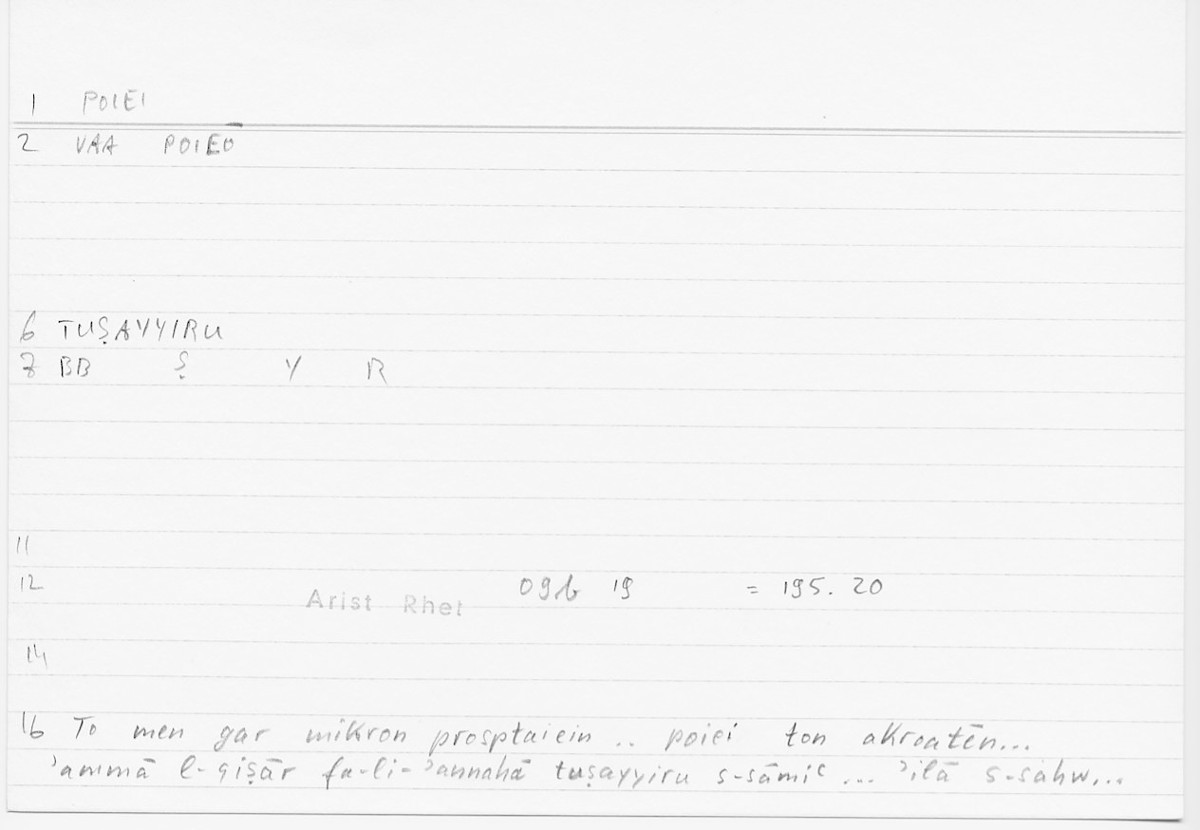 1 POIEI
2 VAA POIEŌ
6 TUṢAYYIRU
7 BB Ṣ Y R
11
12 Arist Rhet 09b 19 = 195. 20
14
16 To men gar mikron prosptaiein .. poiei ton akroatēn...
ʾammā l-qiṣār fa-li-ʾannahā tuṣayyiru s-sāmiʿ ... ʾilā s-sahw...